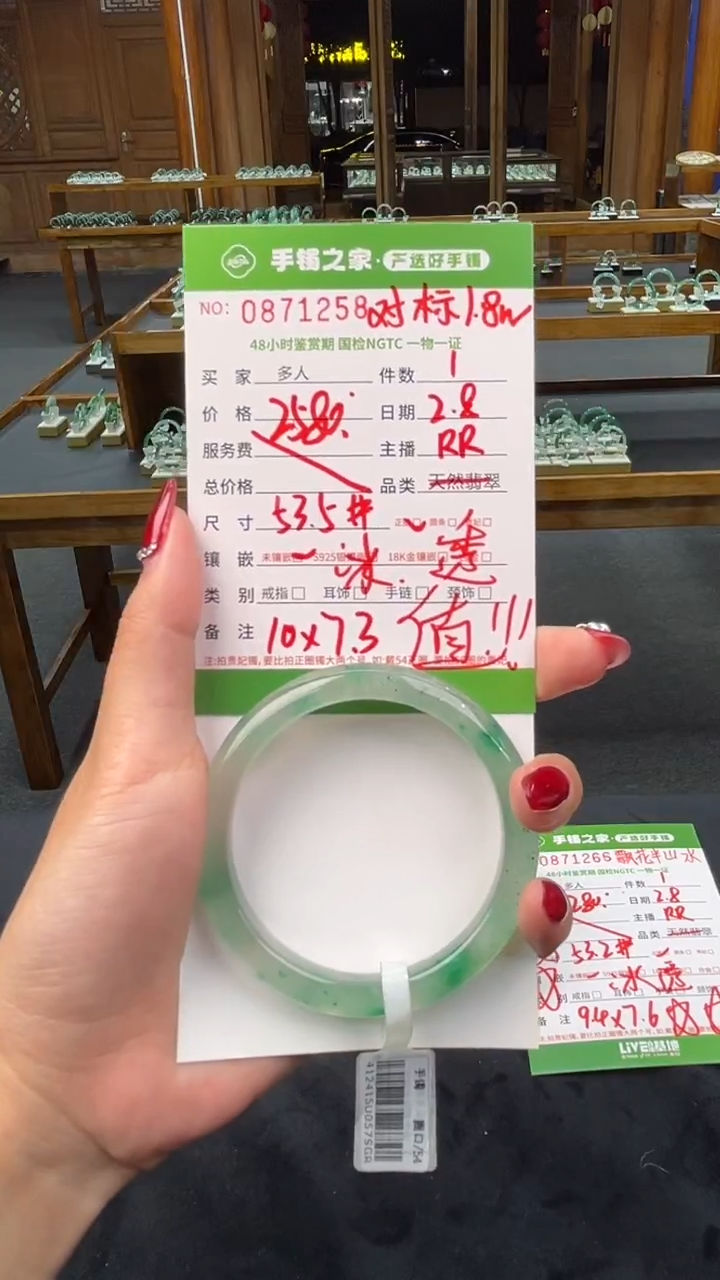 手镯之家·严选好手镯
NO: 0871258 对标1.8w
48小时鉴赏期 国检NGTC 一物一证
买家 多人 件数 1
价格 2580. 日期 2.8
服务费 主播 RR
总价格 品类 天然翡翠
尺寸 53.5# 正圈
镶嵌 未镶嵌 S925银 18K金镶嵌
冰.透
类别 戒指 耳饰 手链 颈饰
备注 10x7.3 值!!!
手镯之家·严选好手镯
0871266 飘花半山水
48小时鉴赏期 国检NGTC 一物一证
多人 件数 1
280. 日期 2.8
主播 RR
品类 天然翡翠
53.2#
冰透
别 戒指
备注 94x7.6
LIVE
手镯 圈口/54